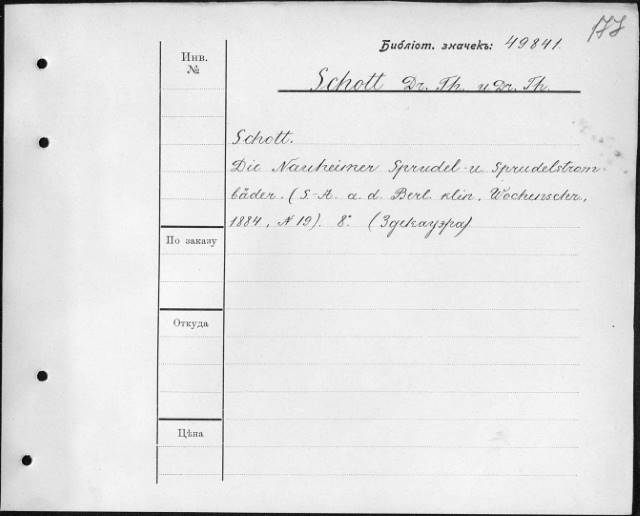 177
Библіот. значекъ: 49841.
Инв.
№
Schott Dr. Th. u Dr. Th.
Schott.
Die Nauheimer Sprudel- u Sprudelstrom-
bäder. (S.-A. a. d. Berl. klin. Wochenschr.,
1884, № 19). 8°. (Здекауэра)
По заказу
Откуда
Цѣна